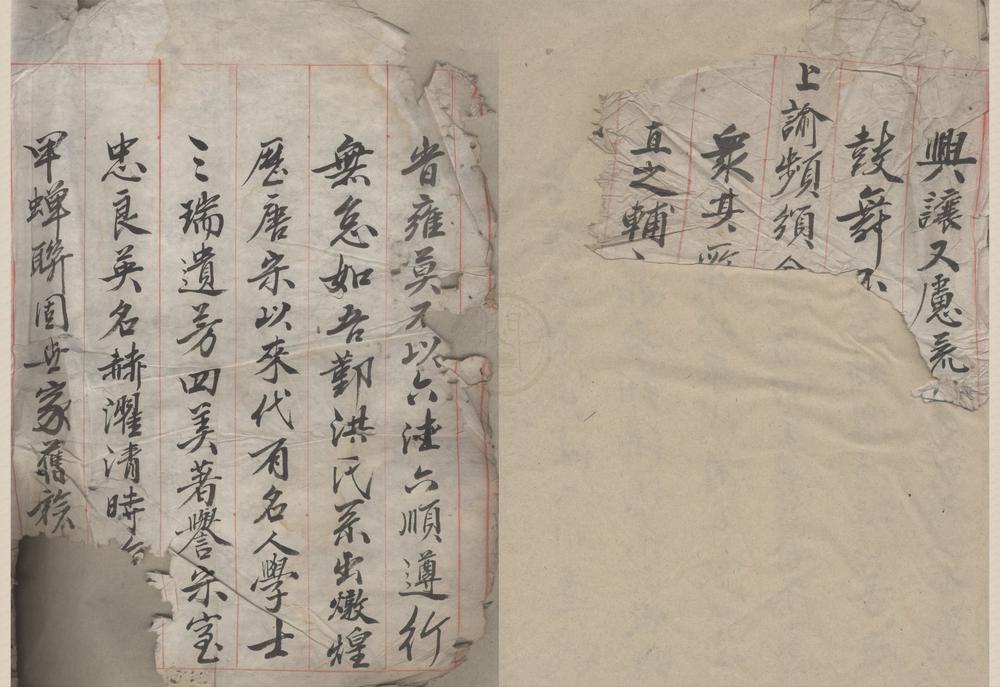 興讓又慮亮
鼓舞不
上諭頻頒
衆其所
直之輔
皆雍莫不以六逵六順遵行
無怠如吾鄞洪氏系出燉煌
歷唐宋以來代有名人學士
三瑞遺芳四美著譽宋室
忠良英名赫濯清時
甲蟬聯固世家舊